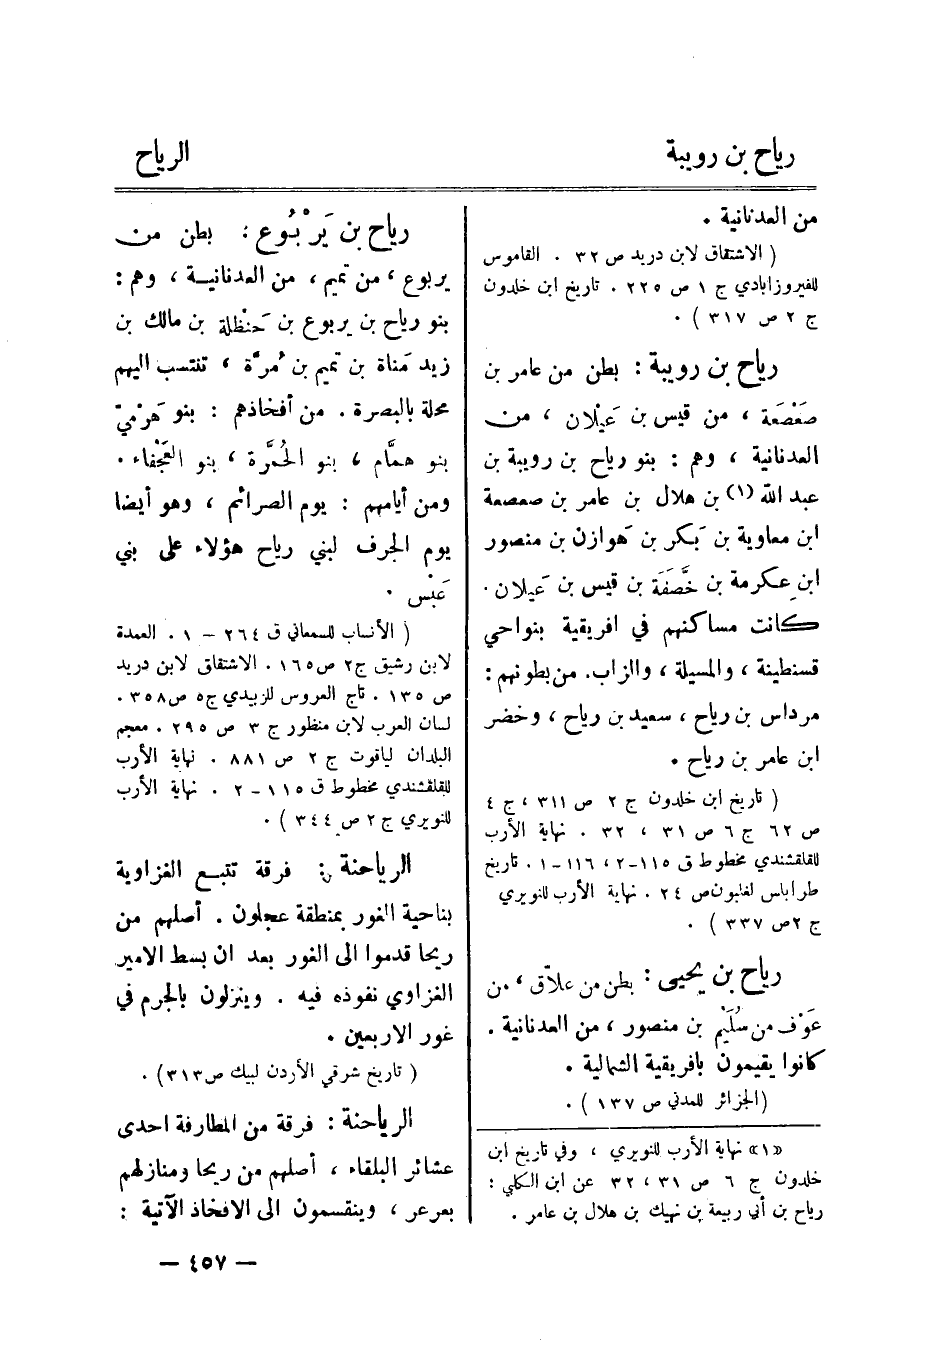 رياح بن رويبة
الرياح
من العدنانية .
( الاشتقاق لابن دريد ص ٣٢ . القاموس
للفيروزابادي ج ١ ص ٢٢٥ . تاريخ ابن خلدون
ج ٢ ص ٣١٧ ) .
رياح بن رويبة : بطن من عامر بن
صَعْصَعَة ، من قيس بن عَيْلان ، من
العدنانية ، وهم : بنو رياح بن رويبة بن
عبد الله (١) بن هلال بن عامر بن صعصعة
ابن معاوية بن بَكر بن هَوازن بن منصور
ابن عكرمة بن خَصَفَة بن قيس بن عَيلان .
كانت مساكنهم في افريقية بنواحي
قسنطينة ، والمسيلة ، والزاب . من بطونهم :
مرداس بن رياح ، سعيد بن رياح ، وخضر
ابن عامر بن رياح .
( تاريخ ابن خلدون ج ٢ ص ٣١١ ، ج ٤
ص ٦٢ ج ٦ ص ٣١ ، ٣٢ . نهاية الأرب
للقلقشندي مخطوط ق ١١٥-٢ ، ١١٦-١ . تاريخ
طرابلس لغلبون ص ٢٤ . نهاية الأرب للنويري
ج ٢ ص ٣٣٧ ) .
رياح بن يحيى : بطن من علاّق ، من
عَوْف من سُلَيْم بن منصور ، من العدنانية .
كانوا يقيمون بافريقية الشمالية .
(الجزائر للمدني ص ١٣٧ ) .
«١» نهاية الأرب للنويري ، وفي تاريخ ابن
خلدون ج ٦ ص ٣١ ، ٣٢ عن ابن الكلبي :
رياح بن أبي ربيعة بن نهيك بن هلال بن عامر .
رياح بن يَرْبُوع : بطن من
يربوع ، من تميم ، من العدنانية ، وهم :
بنو رياح بن يربوع بن حَنْظلة بن مالك بن
زيد مَناة بن تميم بن مُرَّة ، تنتسب اليهم
محلة بالبصرة . من أفخاذهم : بنو هَرْمِيّ
بنو همَّام ، بنو الحُمَّرة ، بنو العَجْفاء .
ومن أيامهم : يوم الصرائم ، وهو أيضا
يوم الجرف لبني رياح هؤلاء على بني
عَبْس .
( الأنساب للسمعاني ق ٢٦٤ - ١ . العمدة
لابن رشيق ج٢ ص١٦٥ . الاشتقاق لابن دريد
ص ١٣٥ . تاج العروس للزبيدي ج٥ ص٣٥٨ .
لسان العرب لابن منظور ج ٣ ص ٢٩٥ . معجم
البلدان لياقوت ج ٢ ص ٨٨١ . نهاية الأرب
للقلقشندي مخطوط ق ١١٥ - ٢ . نهاية الأرب
للنويري ج ٢ ص ٣٤٤ ) .
الرياحنة : فرقة تتبع الغزاوية
بناحية الغور بمنطقة عجلون . أصلهم من
ريحا قدموا الى الغور بعد ان بسط الامير
الغزاوي نفوذه فيه . وينزلون بالجرم في
غور الاربعين .
( تاريخ شرقي الأردن لبيك ص٣١٣) .
الرياحنة : فرقة من المطارفة احدى
عشائر البلقاء ، أصلهم من ريحا ومنازلهم
بعرعر ، وينقسمون الى الافخاذ الآتية :
— ٤٥٧ —